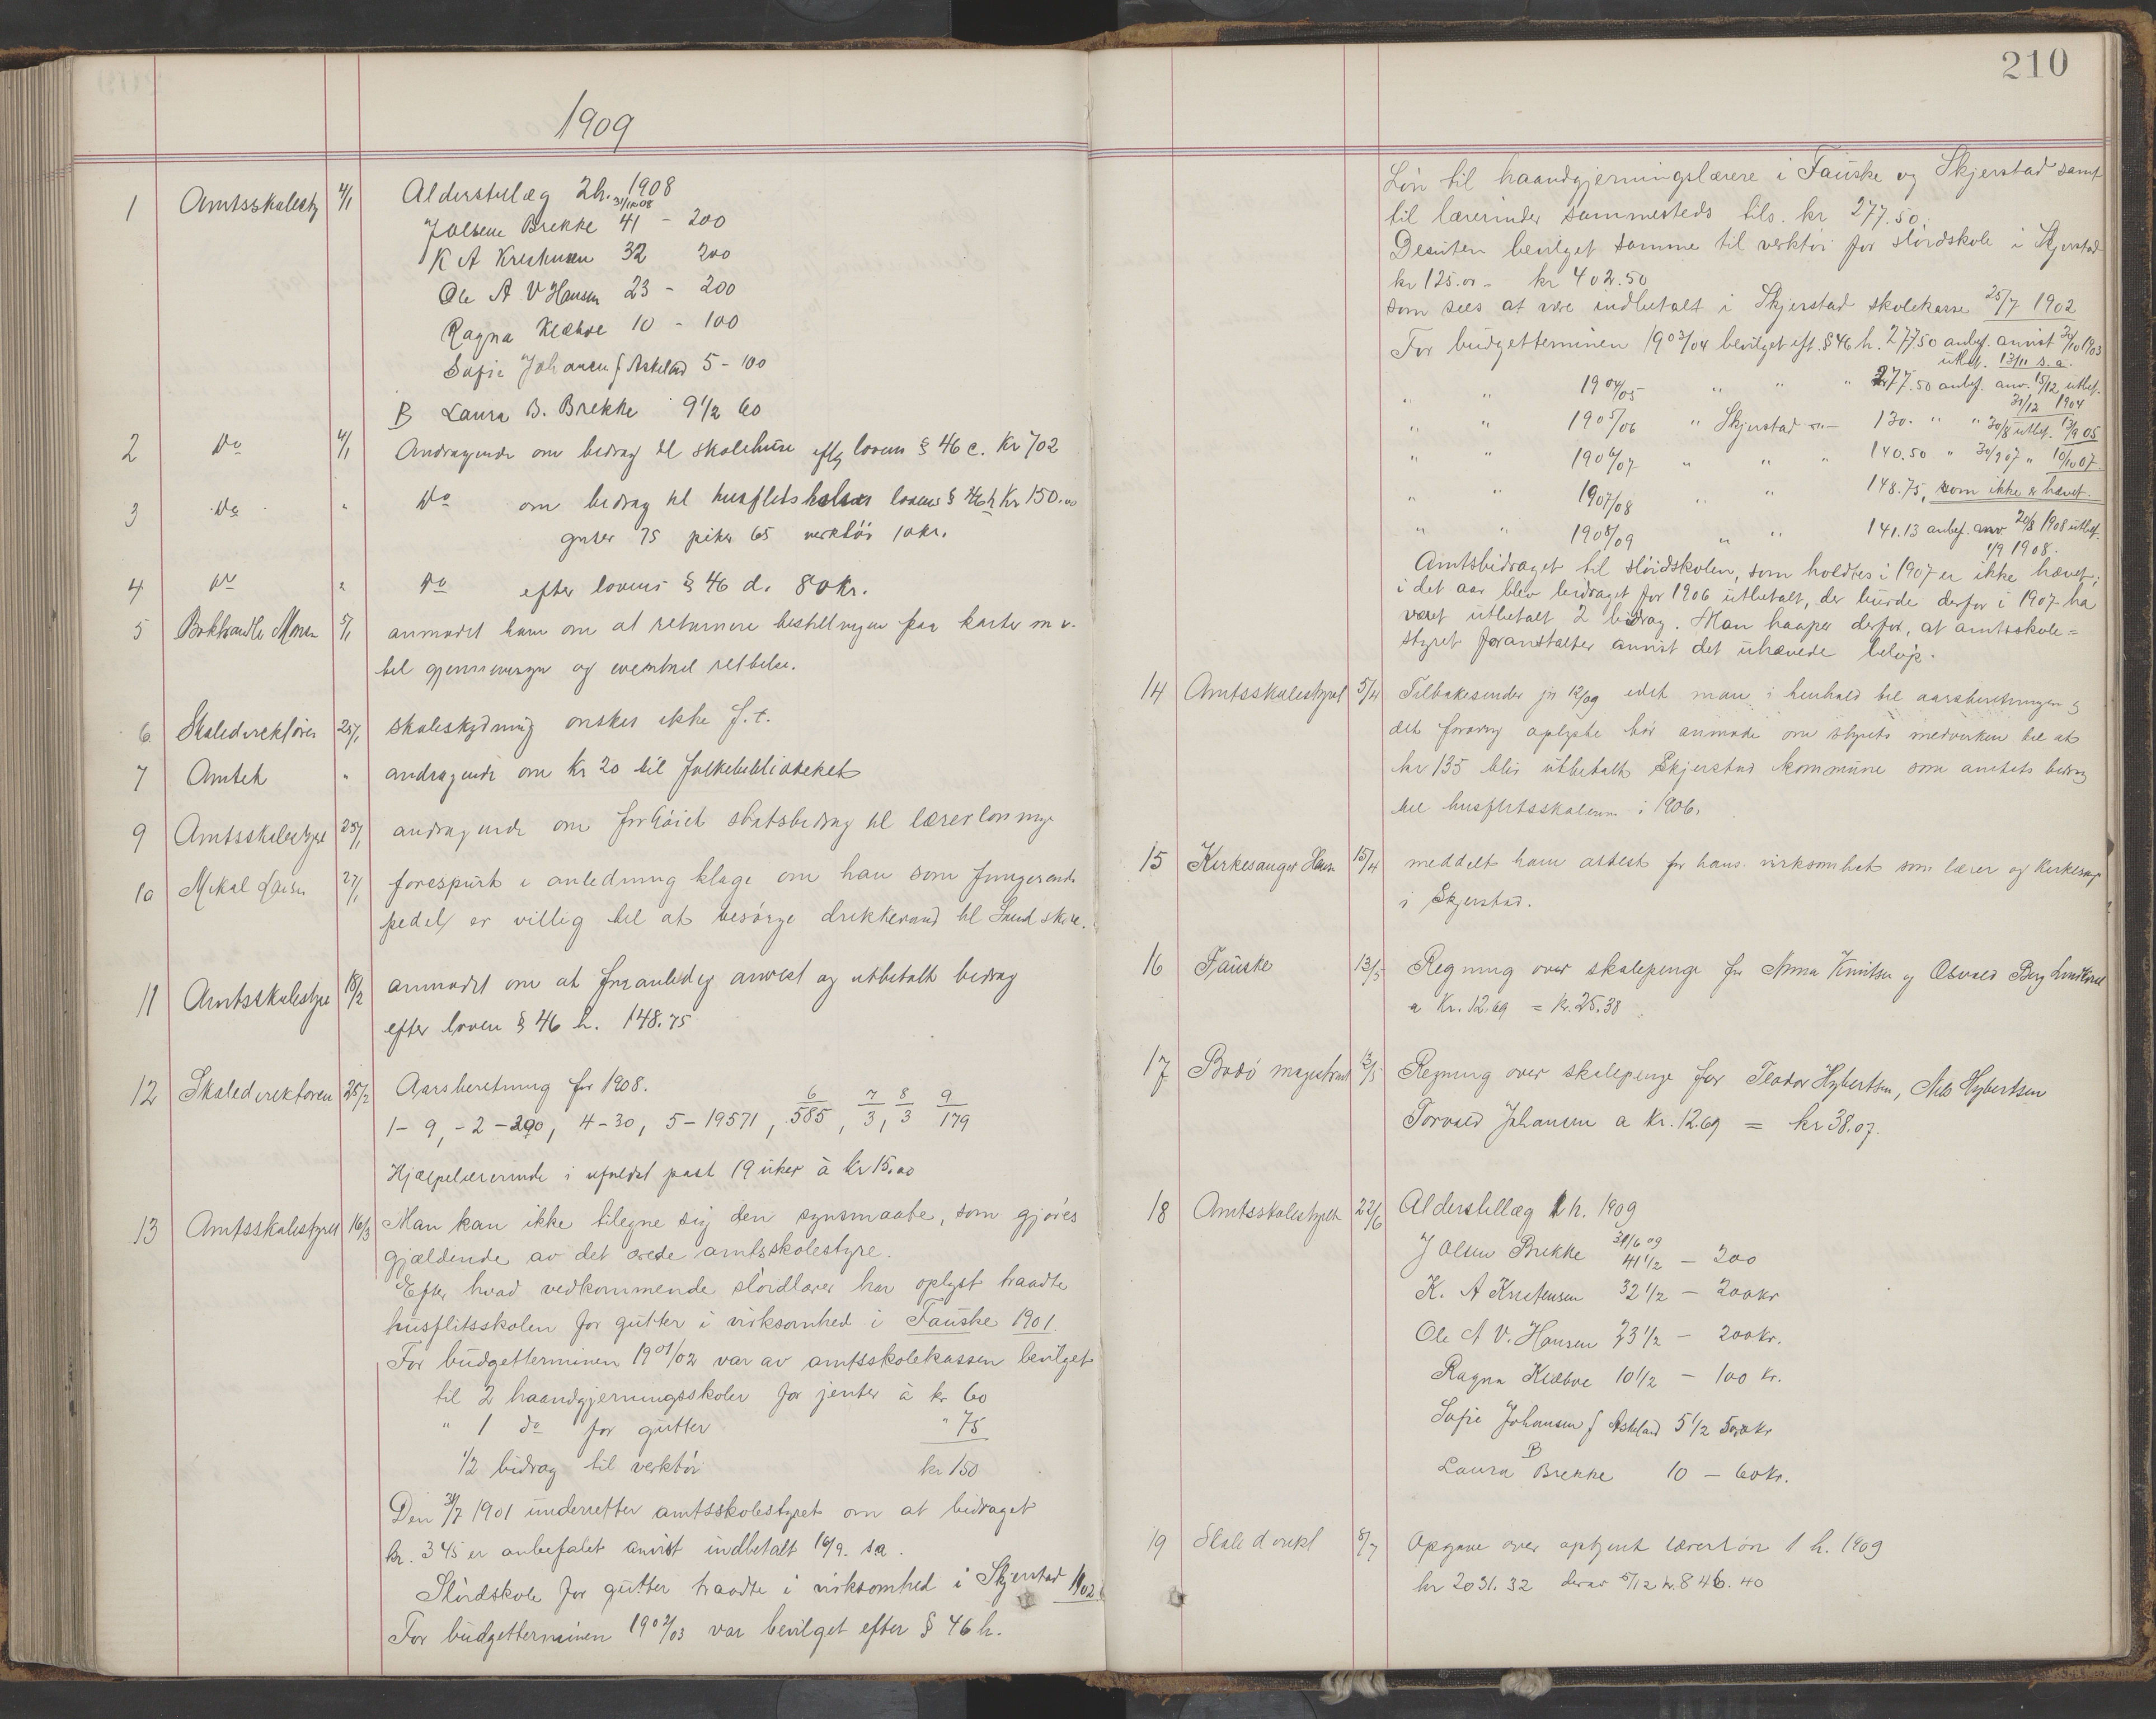 1909
1 Amtsskolesty 4/1 Alderstillæg 2 h. 1908
31/12 08
J Olsen Brekke 41 - 200
K A Kristensen 32 200
Ole A V Hansen 23 - 200
Ragna Klæboe 10 - 100
Sofie Johansen f Askeland 5 - 100
B Laura B. Brekke 9 1/2 60
2 Do 4/1 Andragende om bidrag til skolehuse efter lovens § 46 c. Kr 702
3 Do " Do om bidrag til husflids lovens § 46 h Kr 150.00
gutter 75 piker 65 verktöi 10 kr.
4 Do " Do efter lovens § 46 d. 80 kr.
5 Bokhandler 5/1 anmodet ham om at returnere bestillingen paa karter m v.
til gjennemsyn og eventuel rettelse.
6 Skoledirektören 25/1 skoleskydning önskes ikke f. t.
7 Amtet " andragende om Kr 20 til folkebiblioteket
9 Amtsskolestyre 25/1 andragende om forhöiet statsbidrag til lærerlönninger
10 Mikal Larsen 27/1 forespurt i anledning klage om han som fungerende
pedel er villig til at besörge drikkevand til Sund skole.
11 Amtsskolestyre 18/2 anmodet om at foranledig anvist og utbetalt bidrag
efter loven § 46 h. 148.75
12 Skoledirektören 25/2 Aarsberetning for 1908.
1 - 9, - 2 - 290, 4 - 30, 5 - 19571, 6/585, 7/3, 8/3 9/179
Hjælpelærerinde i ufyldt post 19 uker à kr 15.00
13 Amtsskolestyret 16/3 Man kan ikke tilegne sig den synsmaate, som gjöres
gjældende av det ærede amtsskolestyre.
Efter hvad vedkommende slöidlærer har oplyst traadte
husflitsskolen for gutter i virksomhed i Fauske 1901.
For budgetterminen 1901/02 var av amtsskolekassen bevilget
til 2 haandgjerningsskoler for jenter à kr 60
" 1 do for gutter " 75
1/2 bidrag til verktöi kr 150
Den 31/7 1901 underretter amtsskolestyret om at bidraget
kr. 345 er anbefalet anvist indbetalt 16/9. s.a.
Slöidskole for gutter traadte i virksomhed i Skjerstad 1902.
For budgetterminen 1902/03 var bevilget efter § 46 h.
210
Lön til haandgjerningslærere i Fauske og Skjerstad samt
til lærerinder sammesteds tils. kr 277.50.
Desuten bevilget samme til verktöi for slöidskole i Skjerstad
kr 125.00 - kr 402.50
som sees at være indbetalt i Skjerstad skolekasse 25/7 1902
For budgetterminen 1903/04 bevilget eft. § 46 h. 277.50 anbef. anvist 30/10 1903
utbet. 13/11 s. a.
" " 1904/05 " " " 277.50 anbef. anv. 15/12 utbet.
31/12 1904
" " 1905/06 " Skjerstad 130. " " 30/8 utbet. 13/9 05
" " 1906/07 " " " 140.50 " 30/9 07 " 10/10 07.
" " 1907/08 " " 148.75, som ikke er hævet.
" " 1908/09 " " 141.13 anbef. anv 20/8 1908 utbet.
1/9 1908.
Amtsbidraget til slöidskolen, som holdtes i 1907 er ikke hævet;
i det aar blev bidraget for 1906 utbetalt, der burde derfor i 1907 ha
været utbetalt 2 bidrag. Man haaper derfor, at amtsskole=
styret foranstalter anvist det uhævede belöp.
14 Amtsskolestyret 5/4 Tilbakesender jr 12/09 idet man i henhold til aarsberetningen og
det forövrig oplyste bör anmode om styrets medvirken til at
kr 135 blir utbetalt Skjerstad kommune som amtets bidrag
til husflitsskolerne i 1906.
15 Kirkesanger Hansen 15/4 meddelt ham attest for hans virksomhet som lærer og kirkesanger
i Skjerstad.
16 Fauske 13/5 Regning over skolepenge for Anna Knutsen og Osvald Berg
a Kr. 12.69 = Kr. 25.38
17 Bodö magistrat 13/5 Regning over skolepenge for Teodor Hybertsen, Nils Hybertsen
Torvald Johansen a Kr. 12.69 = kr 38.07.
18 Amtsskolestyret 22/6 Alderstillæg 1 h. 1909
30/6 09
J Olsen Brekke 41 1/2 - 200
K. A Kristensen 32 1/2 - 200 kr
Ole A V. Hansen 23 1/2 - 200 kr.
Ragna Klæboe 10 1/2 - 100 kr.
Sofie Johansen f Askeland 5 1/2 kr
B
Laura Brekke 10 - 60 kr.
19 Skoledirekt 8/7 Opgave over optjent lærerlön 1 h. 1909
kr 2031.32 derav 5/12 kr. 846.40